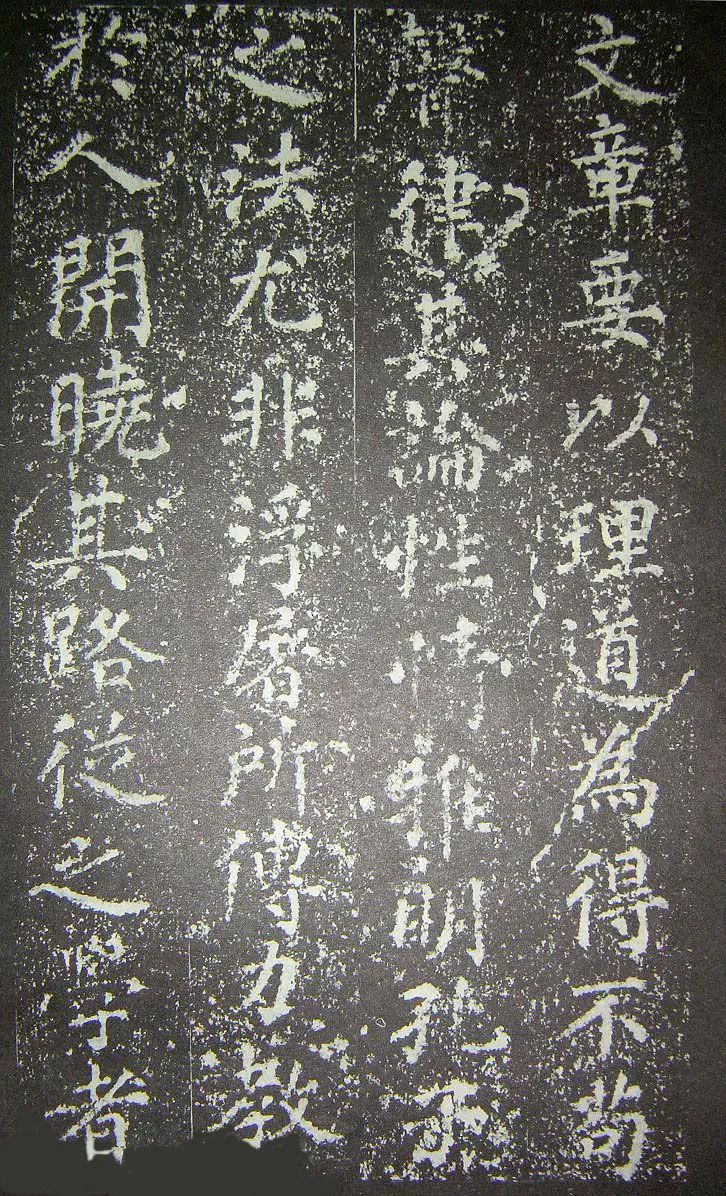 文章要以理道為得不苟
聲律其論性情雅明孔子
之法尤非浮屠所傳力教
於人開曉其路從之學者